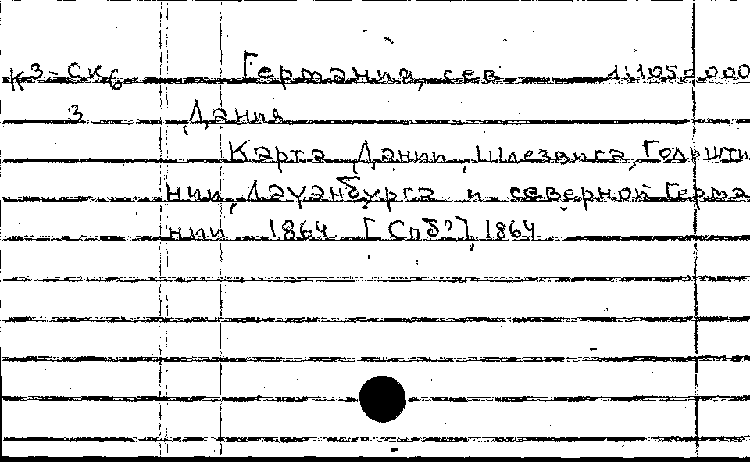 К3-Ск6 Германия, сев 1:1050000
3 Дания
Карта Дании, Шлезвига, Голшти
нии, Лауэнбурга и северной Герма
нии 1864 [Спб?] 1864